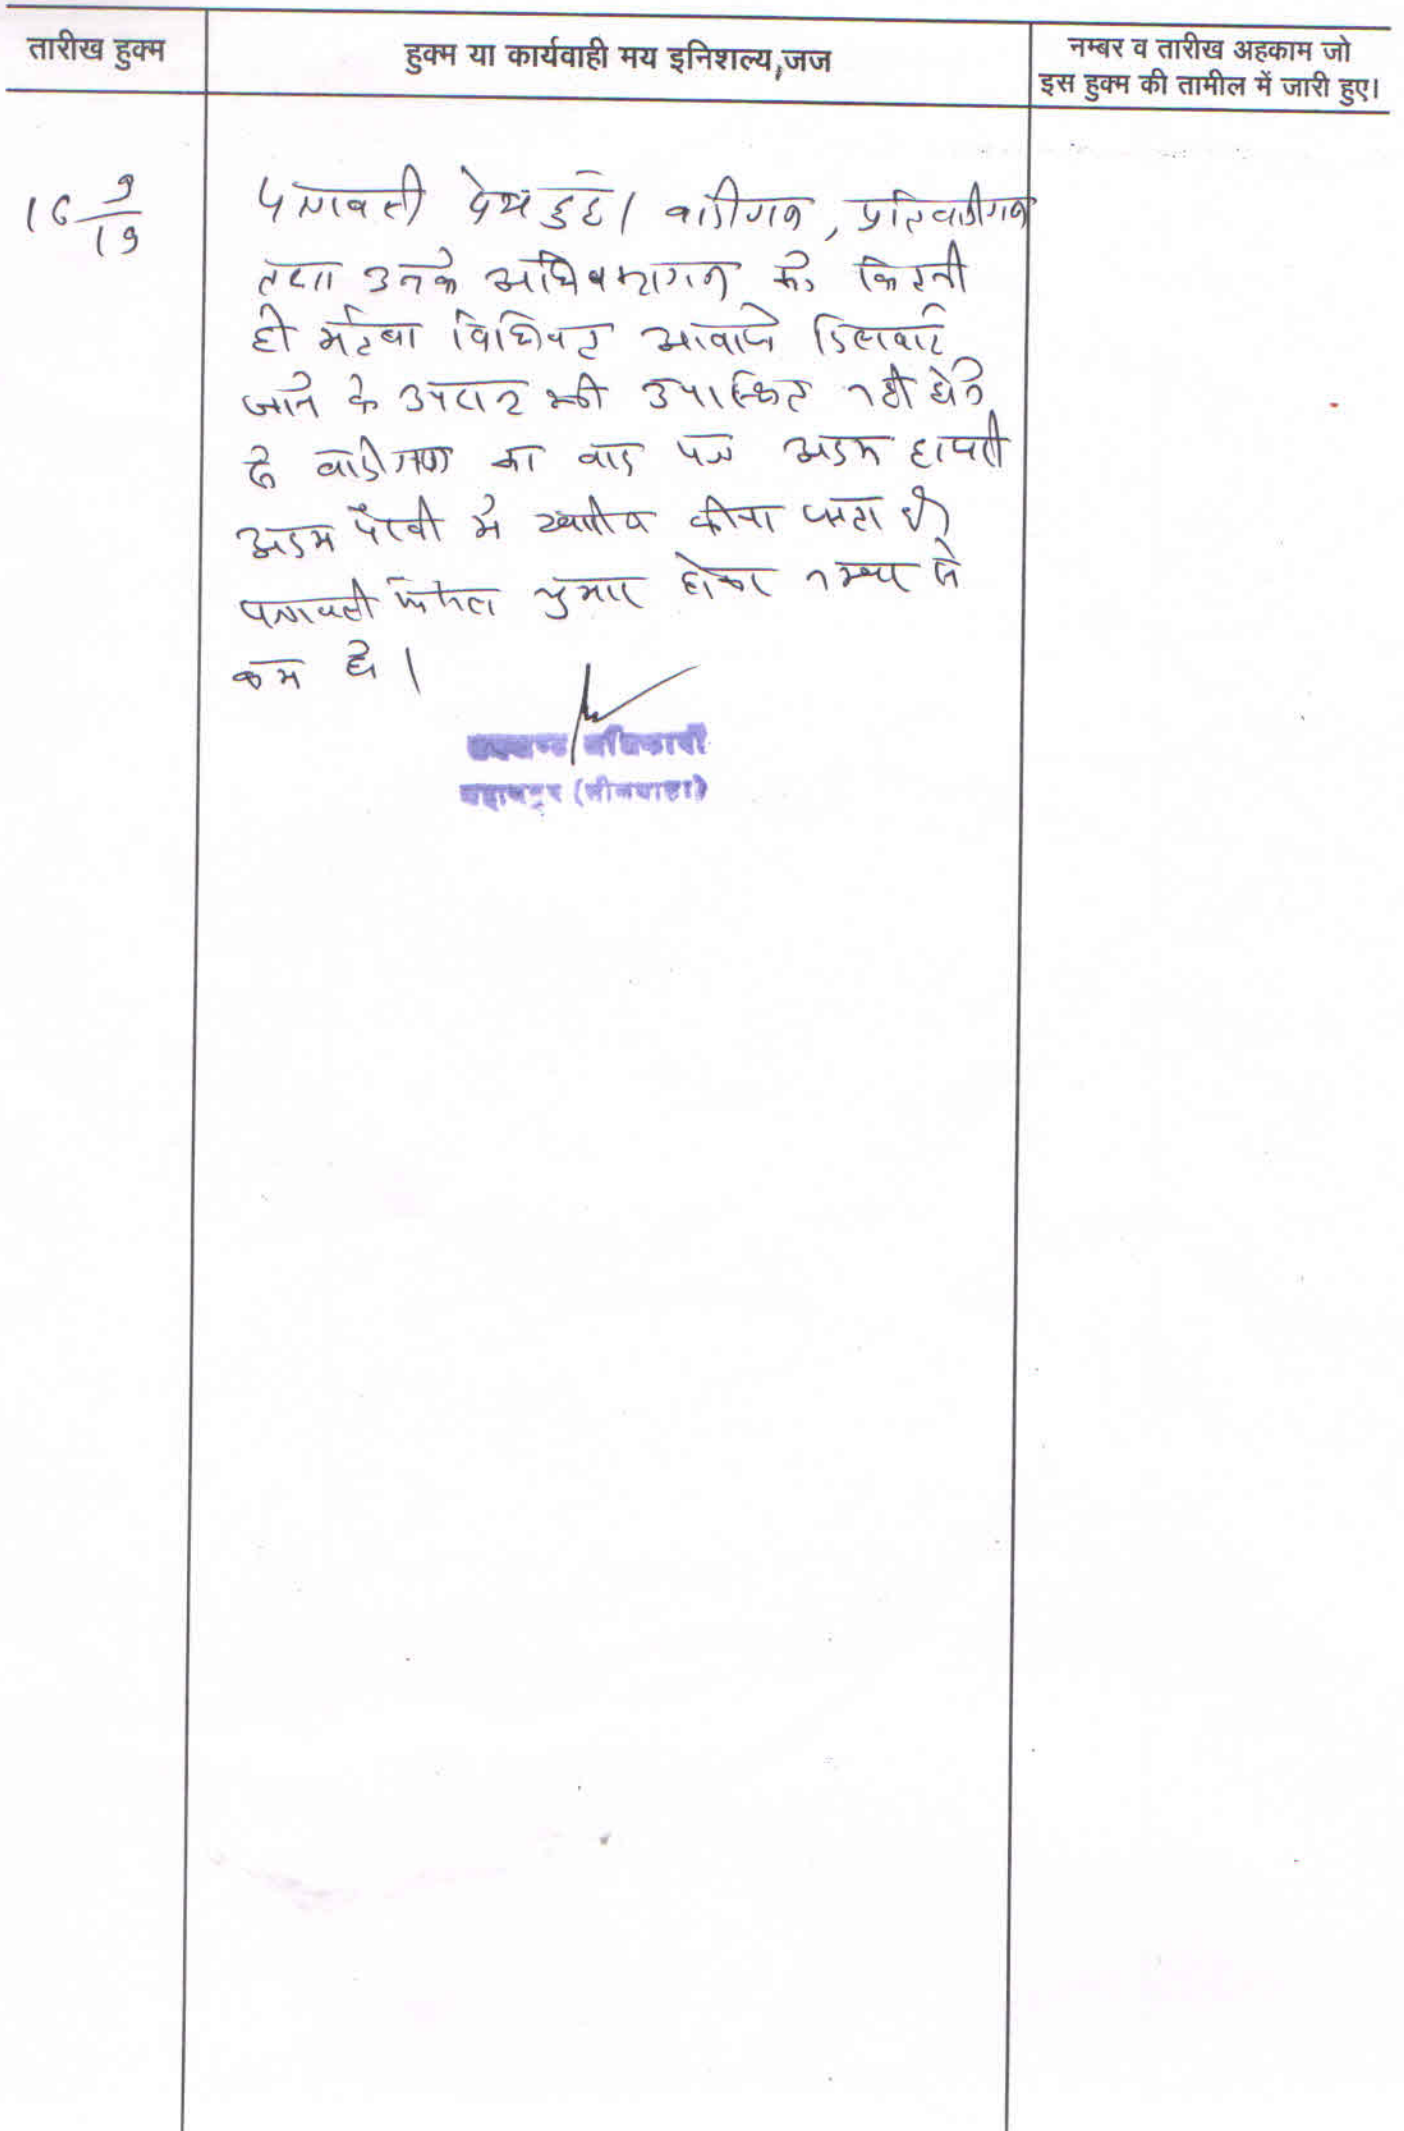 तारीख हुक्म
हुक्म या कार्यवाही मय इनिशल्य,जज
नम्बर व तारीख अहकाम जो
इस हुक्म की तामील में जारी हुए।
16 9/19
पत्रावली पेश हुई। वादीगण, प्रतिवादीगण
तथा उनके अधिवक्तागण को कितनी
ही मर्तबा विधिवत आवाजे दिलवाई
जाने के उपरान्त भी उपस्थित नहीं होने
से वादीगण का वाद पत्र अदम हाजरी
अदम पैरवी में खारीज कीया जाता है।
पत्रावली फैसल शुमार होकर नम्बर से
कम हो।
उपखण्ड अधिकारी
(भीलवाड़ा)